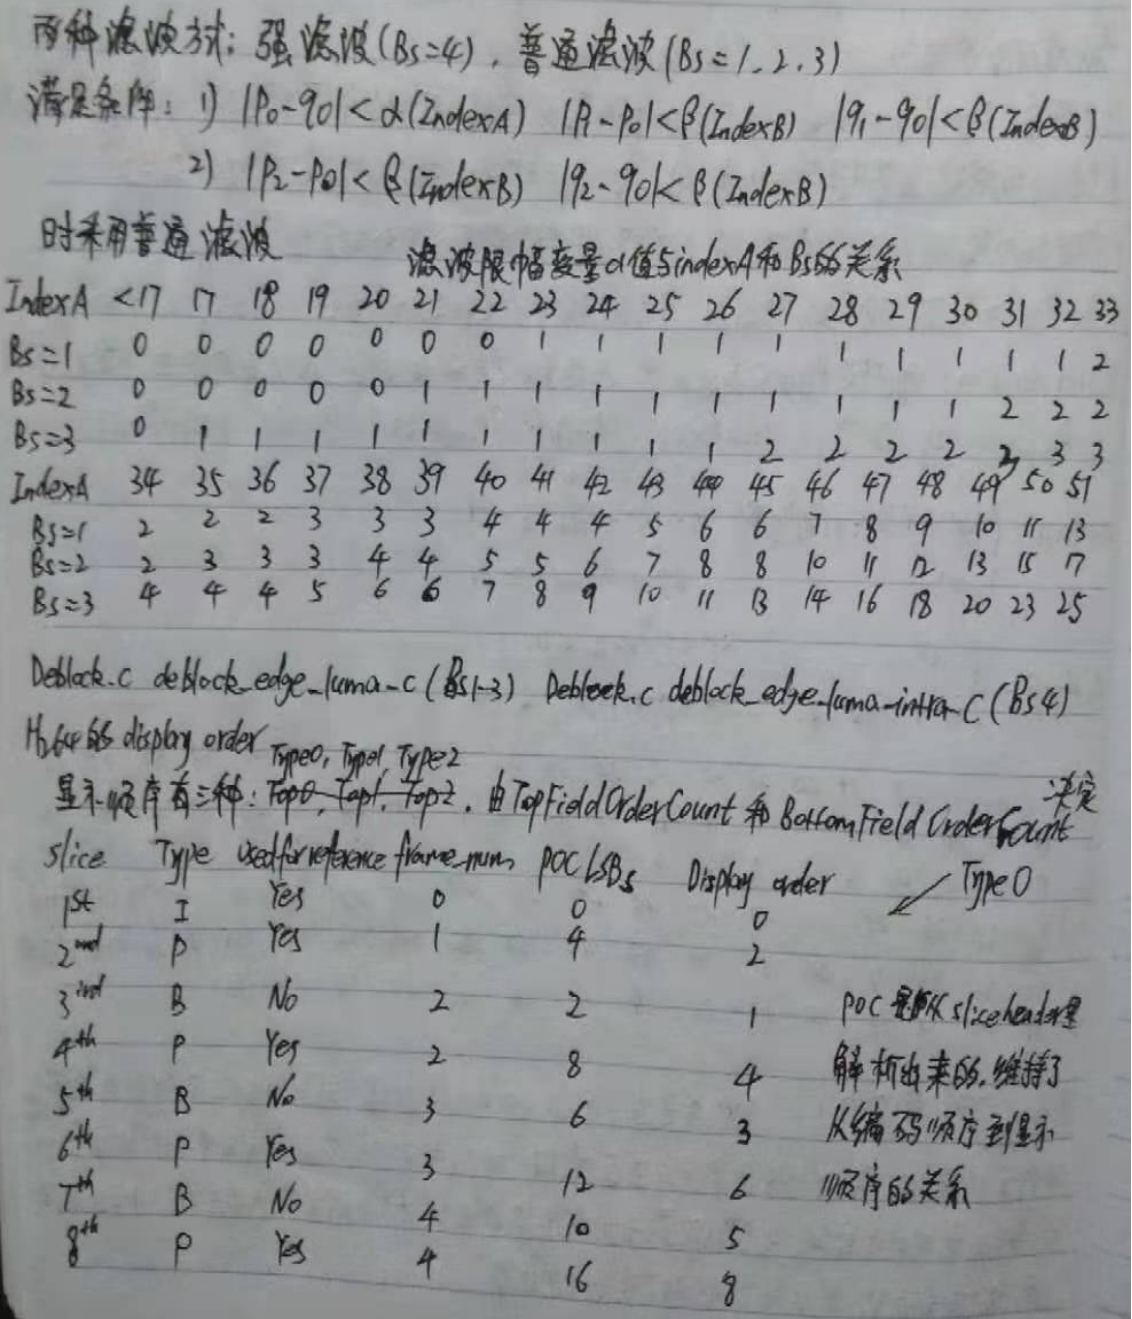 两种滤波方式: 强滤波(Bs=4), 普通滤波(Bs=1.2.3)
满足条件: 1) |P0-q0|<α(IndexA) |P1-P0|<β(IndexB) |q1-q0|<β(IndexB)
2) |P2-P0|<β(IndexB) |q2-q0|<β(IndexB)
时采用普通滤波
滤波限幅变量α值与indexA和Bs的关系
IndexA <17 17 18 19 20 21 22 23 24 25 26 27 28 29 30 31 32 33
Bs=1 0 0 0 0 0 0 0 1 1 1 1 1 1 1 1 1 1 2
Bs=2 0 0 0 0 0 1 1 1 1 1 1 1 1 1 1 2 2 2
Bs=3 0 1 1 1 1 1 1 1 1 1 1 2 2 2 2 3 3
IndexA 34 35 36 37 38 39 40 41 42 43 44 45 46 47 48 49 50 51
Bs=1 2 2 2 3 3 3 4 4 4 5 6 6 7 8 9 10 11 13
Bs=2 2 3 3 3 4 4 5 5 6 7 8 8 10 11 12 13 15 17
Bs=3 4 4 4 5 6 6 7 8 9 10 11 13 14 16 18 20 23 25
Deblock.c deblock_edge_luma_c (Bs1-3) Deblock.c deblock_edge_luma_intra_c (Bs4)
H264的display order Type0, Type1, Type2
显示顺序有三种: Top0, Top1, Top2. 由TopFieldOrderCount 和 BottomFieldOrderCount 决定
slice Type used for reference frame_num POC LSBs Display order Type0
1st I Yes 0 0 0
2nd P Yes 1 4 2
3ird B No 2 2 1 POC 是从sliceheader里
4th P Yes 2 8 4 解析出来的,维持了
5th B No 3 6 3 从编码顺序到显示
6th P Yes 3 12 6 顺序的关系
7th B No 4 10 5
8th P Yes 4 16 8